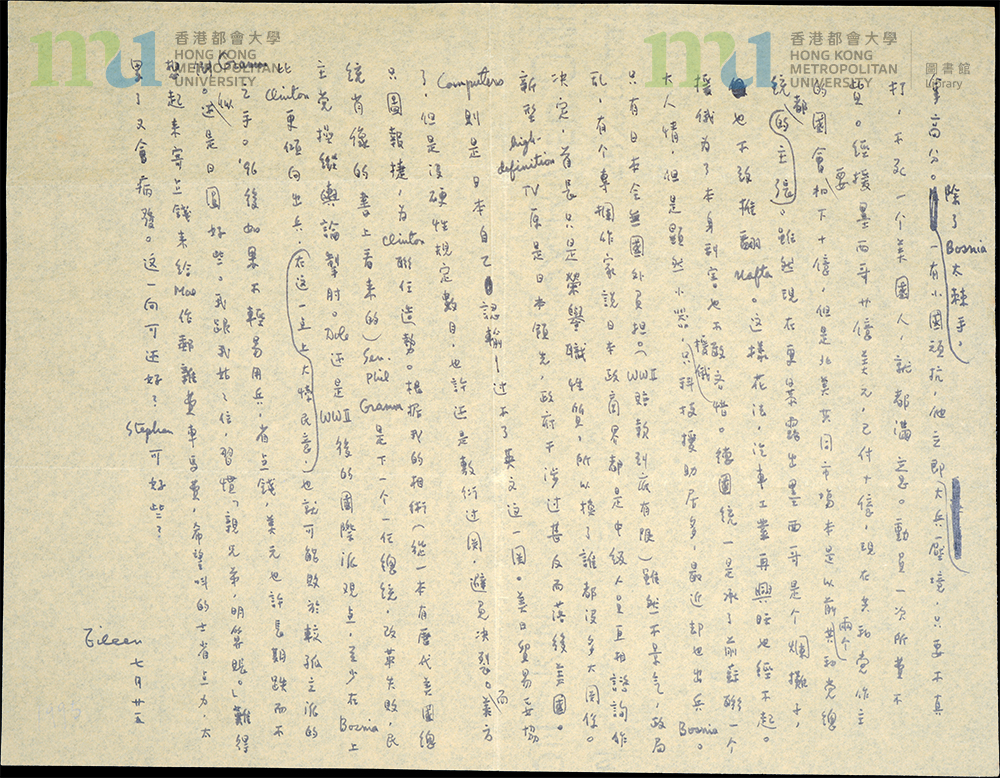 香港都會大學
HONG KONG
METROPOLITAN
UNIVERSITY
香港都會大學
HONG KONG
METROPOLITAN
UNIVERSITY
圖書館
Library
拿高分。除了Bosnia太棘手,一有小國頑抗,他立即大兵壓境,只要不真
打,不死一个美國人,就都滿意。動員一次所費不
貲。經援墨西哥廿億美元,已付十億,現在共和黨作主
的國會要扣下十億,但是北美共同市場本是以前兩個共和黨總
統都的主張。雖然現在更暴露出墨西哥是个爛攤子,
也不敢推翻Nafta。這樣花法,汽車工業再興旺也經不起。
援俄為了本身利害,也不敢吝惜。德國統一是承了前蘇聯一个
大人情,但是顯然小器,援俄只科技援助居多,最近却也出兵Bosnia。
只有日本會無國外負担。(WWII賠款到底有限)雖然不景气,政局
乱,有个專欄作家說日本政商界都是中級人員互相諮詢作
決定,首長只是榮譽職性質,所以換了誰都沒多大関係。
新型high-definition TV原是日本領先,政府干涉過甚反而落後美國。
Computers則是日本自己認輸—過不了英文這一関。美日貿易妥協
了,但是沒硬性規定數目,也許還是敷衍過関,避免決裂。而美方
只圖報捷,為Clinton聯任造勢。根據我的相術(從一本有歷代美國總
統肖像的書上看來的)Sen. Phil Gramm是下一个一任總統,改革失敗,民
主党操縱輿論掣肘。Dole還是WWII後的國際派觀点,至少在Bosnia上
比Clinton更傾向出兵,在這一点上大悖民意,也就可能敗於較孤立派的
Gramm之手。'96後如果不輕易用兵,省点錢,美元也許長期跌而不
倒。似還是日圓好些。我跟我姑姑住,習慣「親兄弟,明算賬。」難得
想起來寄点錢來給Mae作郵雜費車馬費,希望叫的士省点力,太
累了又會病發。這一向可还好?Stephen可好些?
Eileen 七月廿五